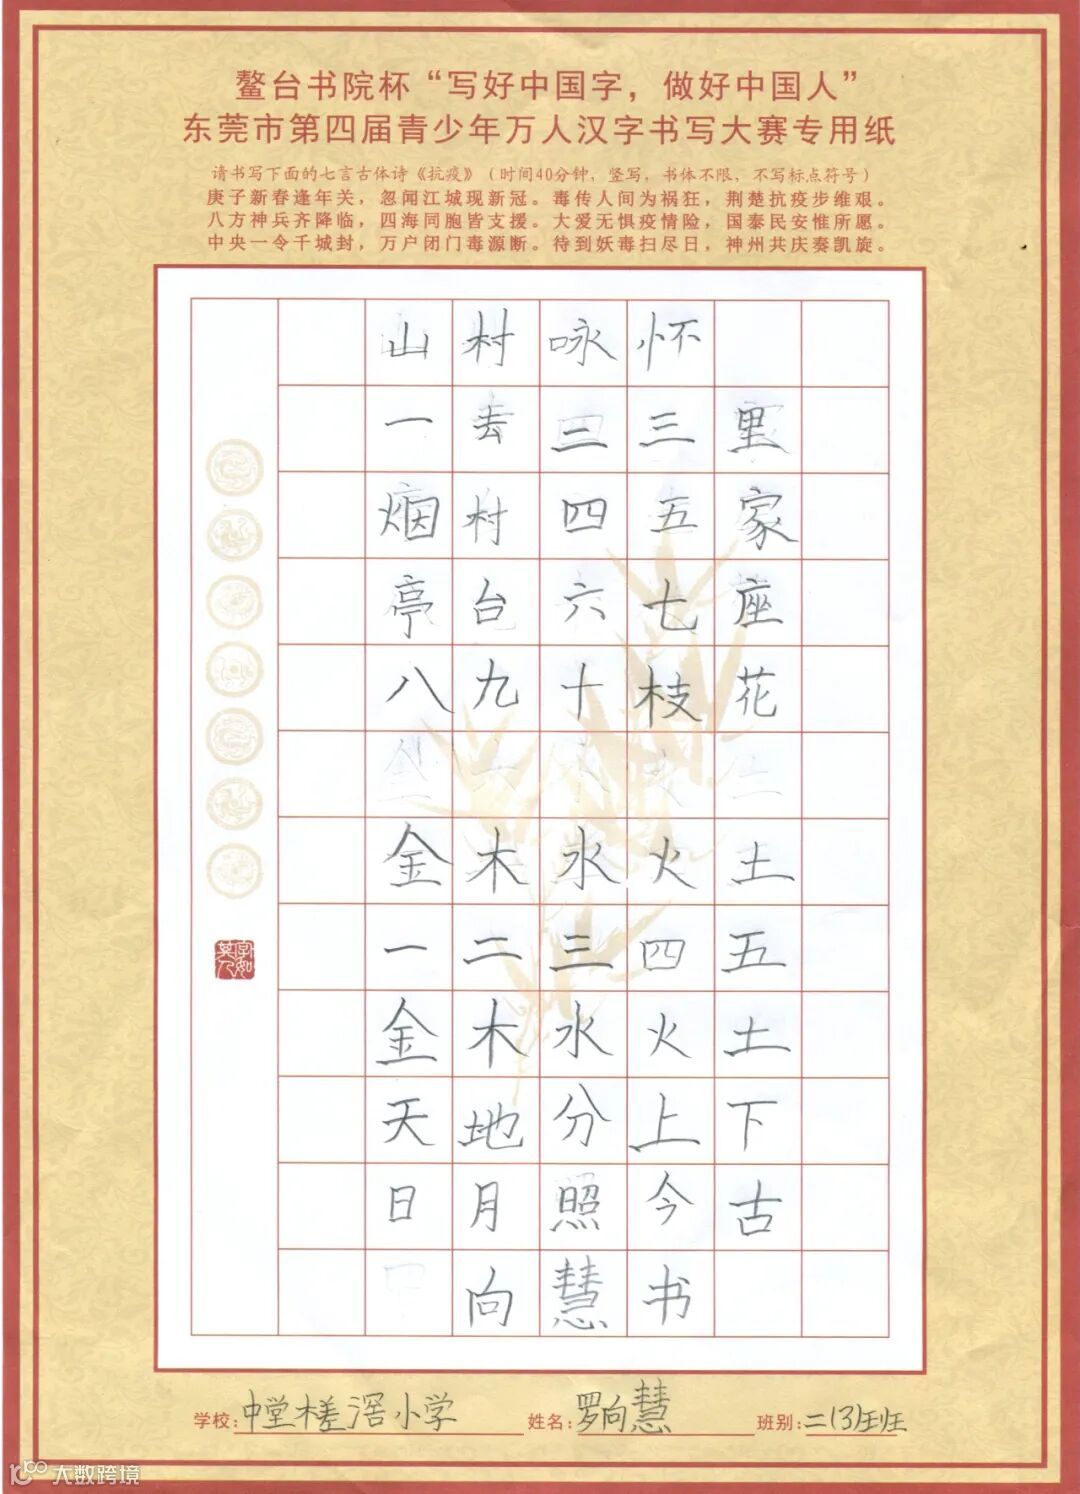 鳌台书院杯“写好中国字，做好中国人”
东莞市第四届青少年万人汉字书写大赛专用纸
请书写下面的七言古体诗《抗疫》（时间40分钟，竖写，书体不限，不写标点符号）
庚子新春逢年关，忽闻江城现新冠。毒传人间为祸狂，荆楚抗疫步维艰。
八方神兵齐降临，四海同胞皆支援。大爱无惧疫情险，国泰民安惟所愿。
中央一令千城封，万户闭门毒源断。待到妖毒扫尽日，神州共庆奏凯旋。
山村咏怀
一去三三里
烟村四五家
亭台六七座
八九十枝花
金木水火土
一二三四五
金木水火土
天地分上下
日月照今古
向慧书
学校：中堂槎滘小学 姓名：罗向慧 班别：二(3)班
大数跨境